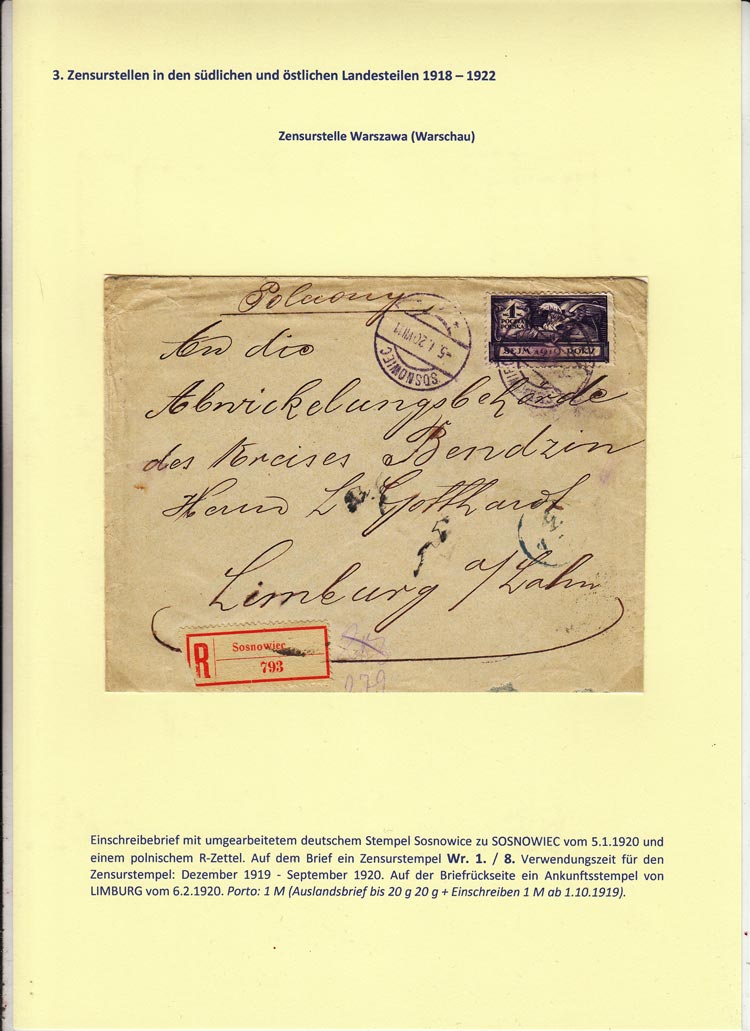 3. Zensurstellen in den südlichen und östlichen Landesteilen 1918 – 1922
Zensurstelle Warszawa (Warschau)
SOSNOWIEC
-5.1.20.VIII
1
POCZTA
POLSKA
SEJM 1919 ROKU
An die
Abwickelungsbehorde
des Kreises Bendzin
Herrn L Gotthardt
Limburg a/Lahn
R
Sosnowiec
793
279
Einschreibebrief mit umgearbeitetem deutschem Stempel Sosnowice zu SOSNOWIEC vom 5.1.1920 und
einem polnischem R-Zettel. Auf dem Brief ein Zensurstempel Wr. 1. / 8. Verwendungszeit für den
Zensurstempel: Dezember 1919 - September 1920. Auf der Briefrückseite ein Ankunftsstempel von
LIMBURG vom 6.2.1920. Porto: 1 M (Auslandsbrief bis 20 g 20 g + Einschreiben 1 M ab 1.10.1919).